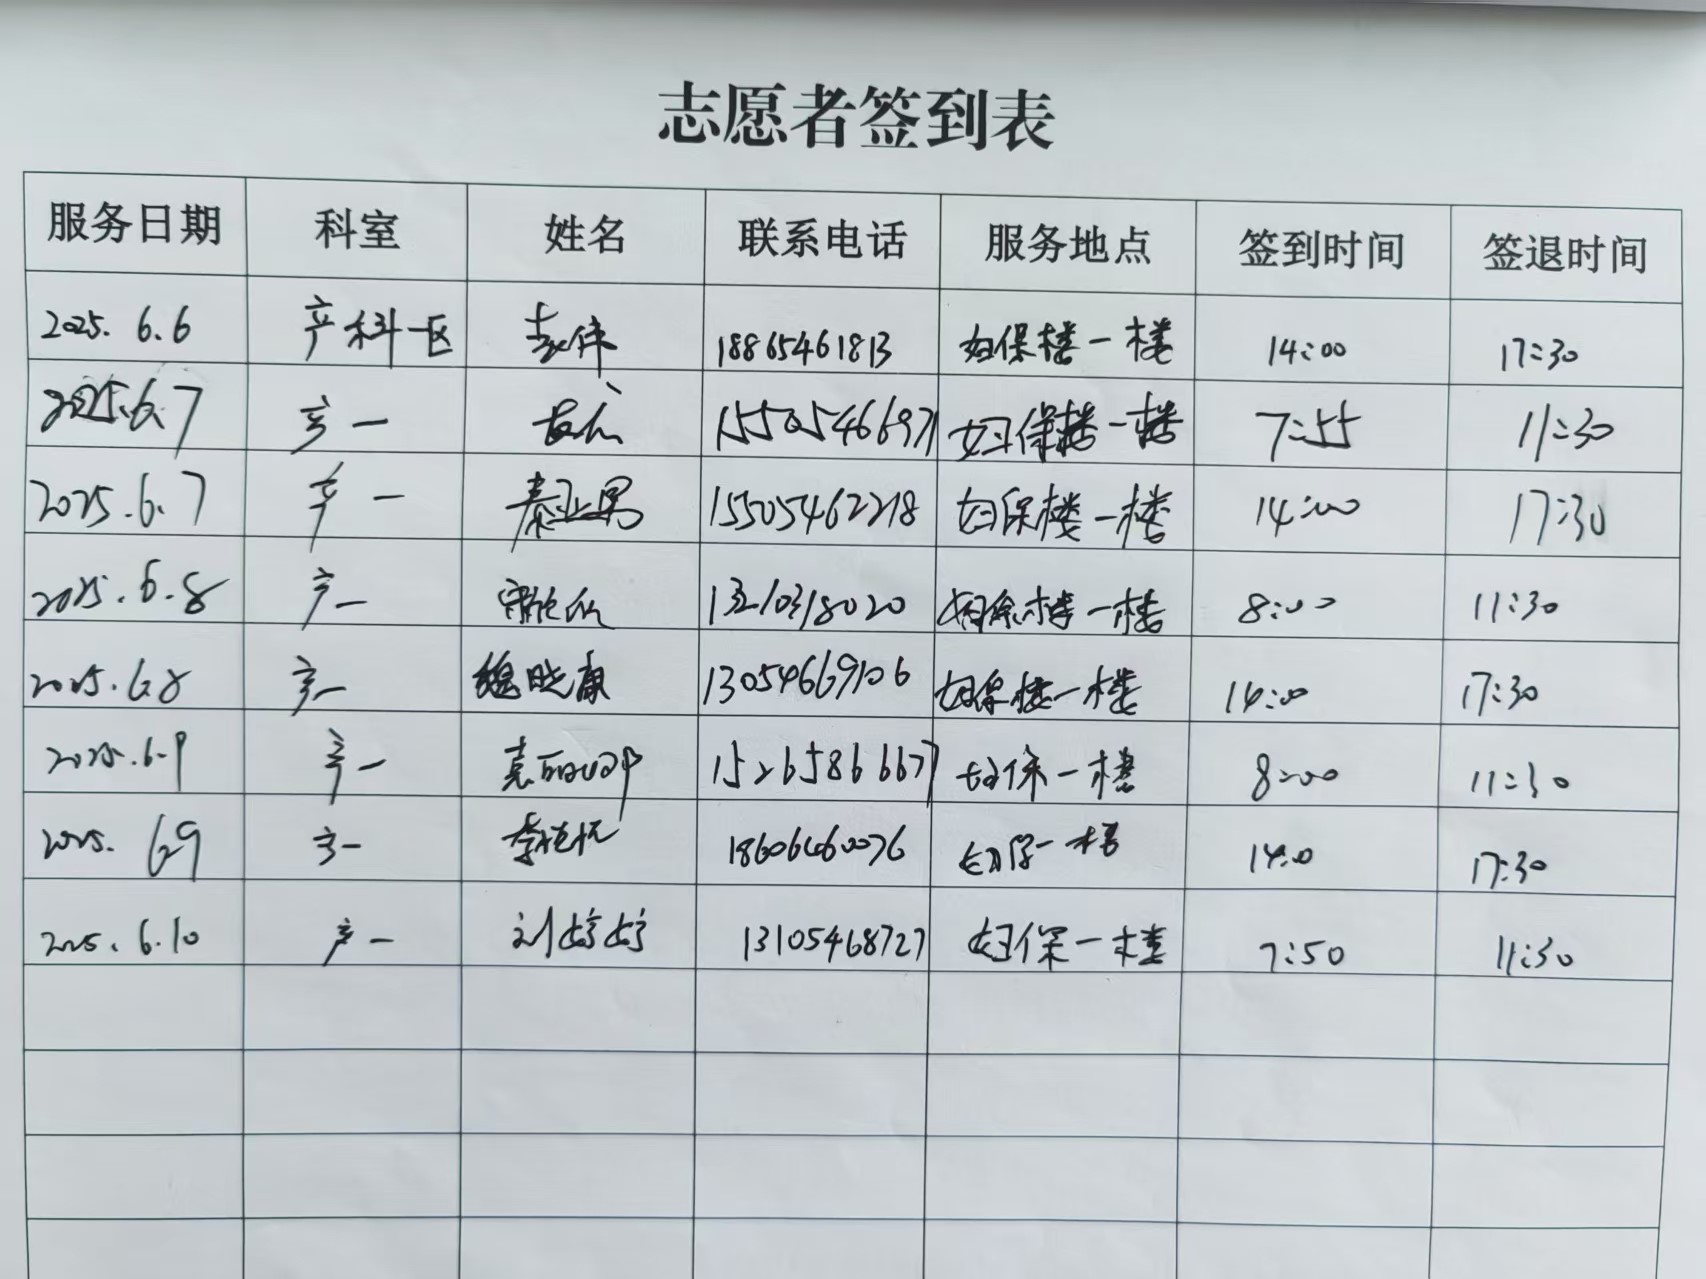 志愿者签到表
服务日期 科室 姓名 联系电话 服务地点 签到时间 签退时间
2025.6.6 产科一区 18865461813 妇保楼一楼 14:00 17:30
2025.6.7 产一 15505466971 妇保楼一楼 7:55 11:30
2025.6.7 产一 秦亚男 15505462218 妇保楼一楼 14:00 17:30
2025.6.8 产一 13210318020 妇保楼一楼 8:00 11:30
2025.6.8 产一 魏晓康 13054669106 妇保楼一楼 14:00 17:30
2025.6.9 产一 15265866677 妇保一楼 8:00 11:30
2025.6.9 产一 18606460076 妇保一楼 14:0 17:30
2025.6.10 产一 刘婷婷 13105468727 妇保一楼 7:50 11:30